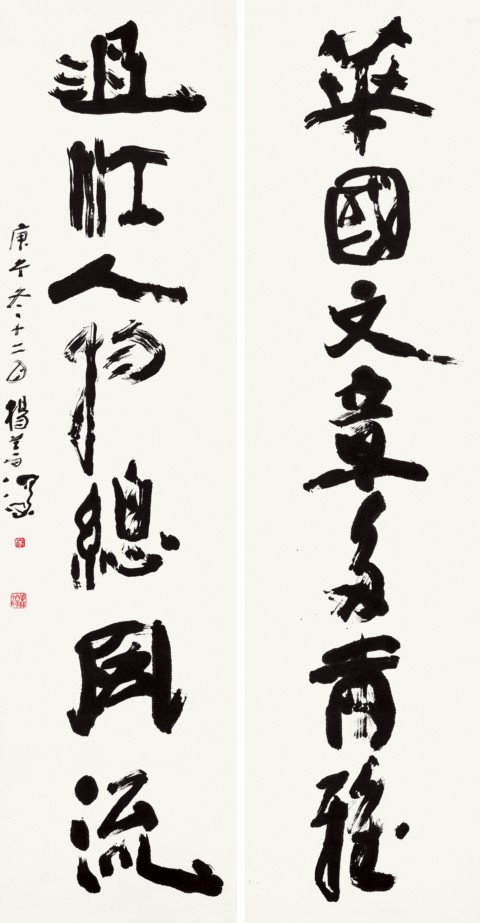 華國文章多爾雅
過江人物總風流
庚午冬十二月楊善深